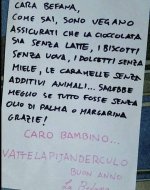 CARA BEFANA,
COME SAI, SONO VEGANO
ASSICURATI CHE LA CIOCCOLATA
SIA SENZA LATTE, I BISCOTTI
SENZA UOVA, I DOLCETTI SENZA
MIELE, LE CARAMELLE SENZA
ADDITIVI ANIMALI... SAREBBE
MEGLIO SE TUTTO FOSSE SENZA
OLIO DI PALMA O MARGARINA
GRAZIE!
CARO BAMBINO...
VATTELAPIJANDERCULO
BUON ANNO
La Befana